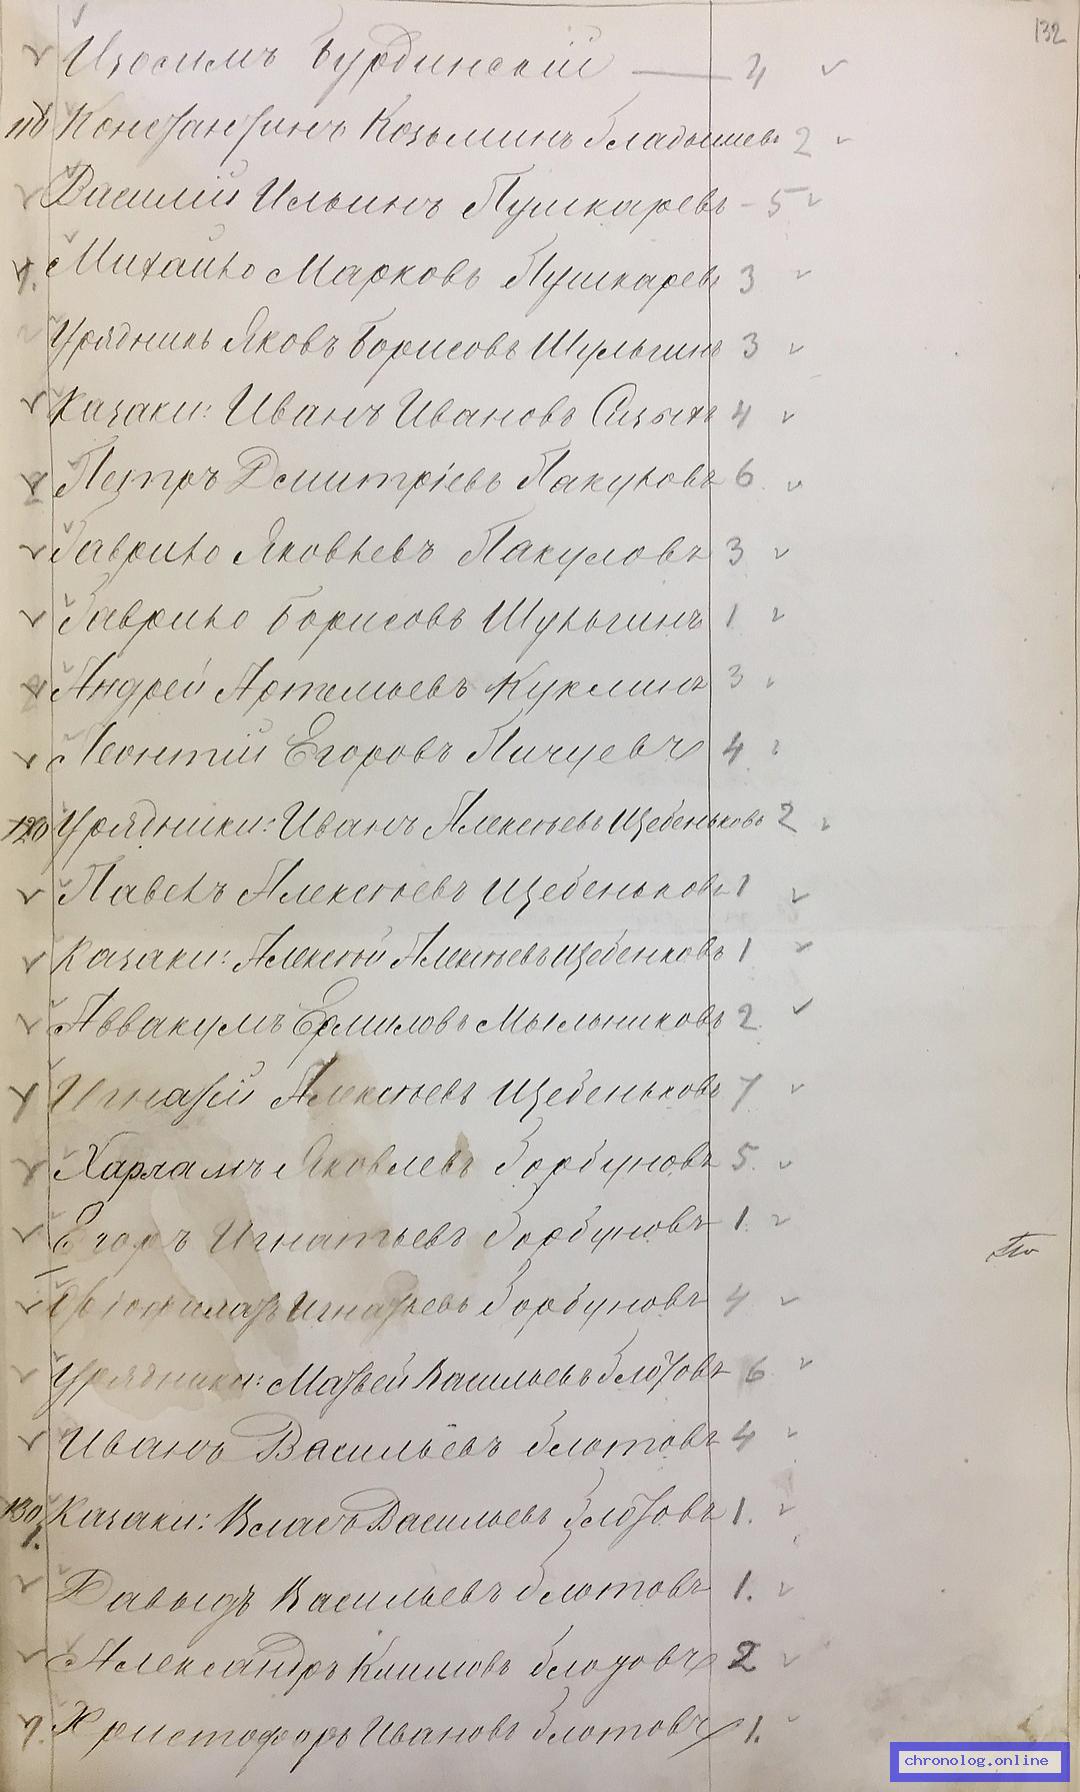 132
Изосимъ Бурдинскій — 4
110 Константинъ Козьминъ Гладышевъ 2
Василій Ильинъ Пушкаревъ - 5
Михайло Марковъ Пушкаревъ 3
Урядникъ Яковъ Борисовъ Шульгинъ 3
Казаки: Иванъ Ивановъ Сизыхъ 4
Петръ Дмитріевъ Пакуловъ 6
Гаврило Яковлевъ Пакуловъ 3
Гаврило Борисовъ Шульгинъ 1
Андрей Артемьевъ Куклинъ 3
Леонтій Егоровъ Пичуевъ 4
120 Урядники: Иванъ Алексѣевъ Щебеньковъ 2
Павелъ Алексѣевъ Щебеньковъ 1
Казаки: Алексѣй Алексѣевъ Щебенковъ 1
Аввакумъ Ермиловъ Мыльниковъ 2
Игнатій Алексѣевъ Щебеньковъ 7
Харламъ Яковлевъ Горбуновъ 5.
Егоръ Игнатьевъ Горбуновъ 1.
Игнатьевъ Горбуновъ 4
Урядники: Матвей Васильевъ Глотовъ 6
Иванъ Васильевъ Глотовъ 4
130 Казаки: Васильевъ Глотовъ 1.
Давыдъ Васильевъ Глотовъ 1.
Александръ Климовъ Глотовъ 2
Христофоръ Ивановъ Глотовъ 1.
chronolog.online